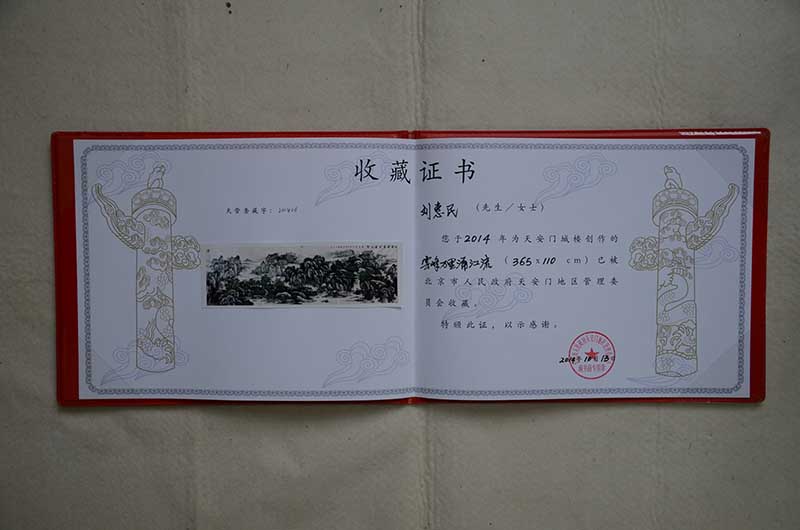 收藏证书
天管委藏字：201408
刘惠民 （先生／女士）
您于2014年为天安门城楼创作的
（365x110 cm）已被
北京市人民政府天安门地区管理委
员会收藏。
特颁此证，以示感谢。
2014年10月13日